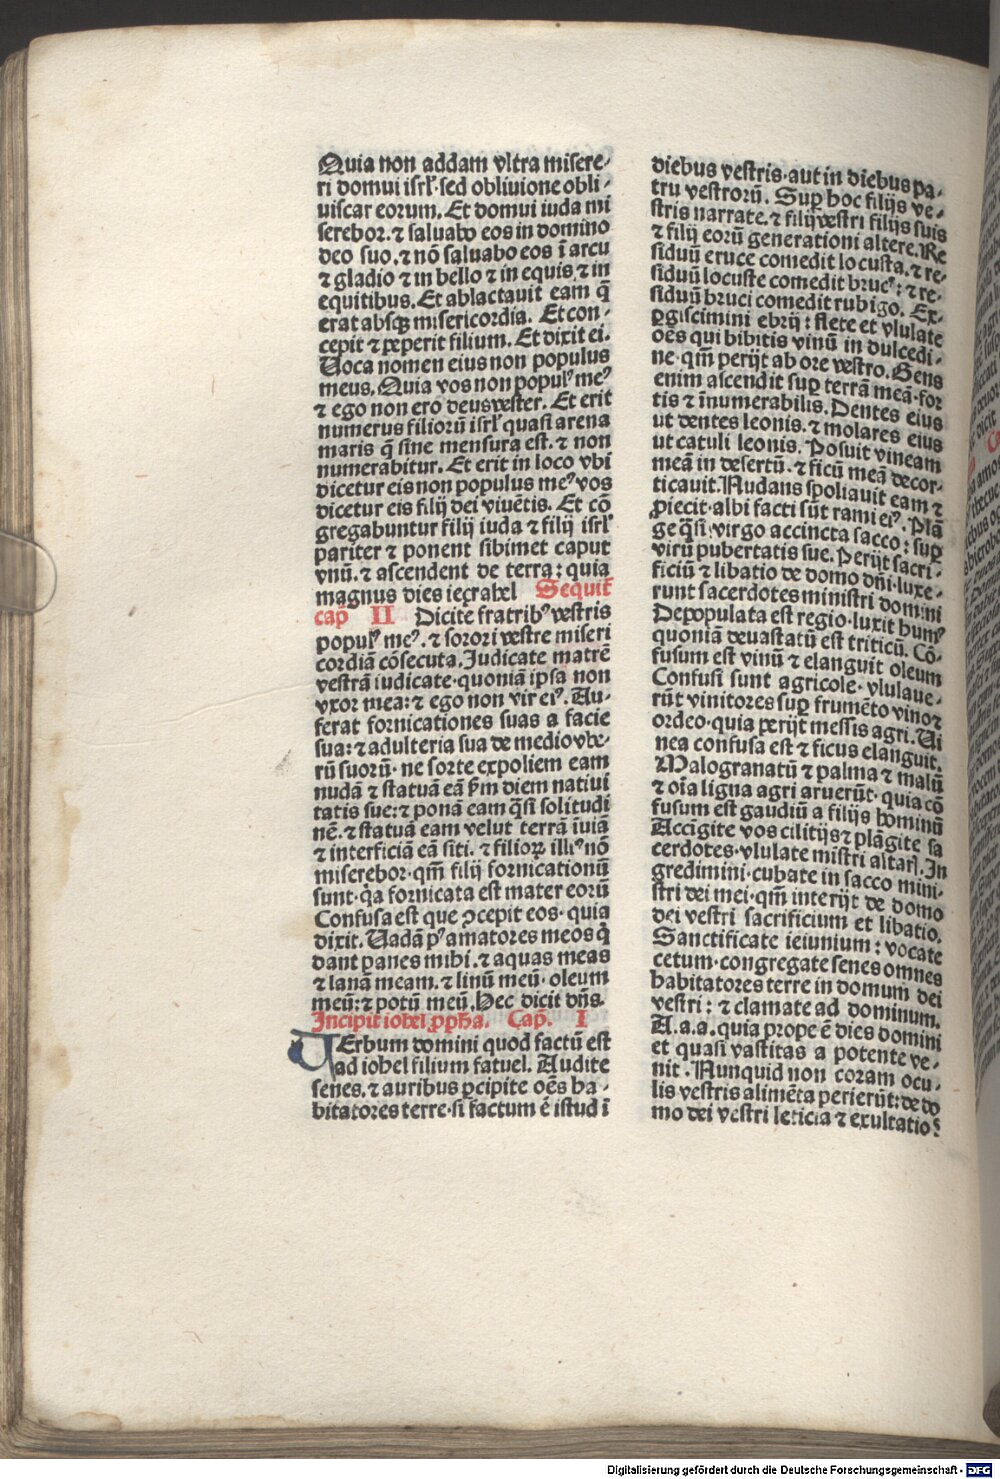 Quia non addam vltra misere⸗
ri domui isrl̕·sed obliuione obli⸗
uiscar eorum. Et domui iuda mi
serebor.⁊ saluabo eos in domino
deo suo.⁊ nō saluabo eos ī arcu
⁊ gladio ⁊ in bello ⁊ in equis.⁊ in
equitibus. Et ablactauit eam q̄
erat absqꝫ misericordia. Et con⸗
cepit ⁊ peperit filium. Et dixit ei.
Voca nomen eius non populus
meus. Quia vos non populꝰ meꝰ
⁊ ego non ero deus vester. Et erit
numerus filiorū isrl̕ quasi arena
maris q̄ sine mensura est.⁊ non
numerabitur. Et erit in loco vbi
dicetur eis non populus meꝰ vos
dicetur eis filij dei viuētis. Et cō
gregabuntur filij iuda ⁊ filij isrl̕
pariter ⁊ ponent sibimet caput
vnū.⁊ ascendent de terra: quia
magnus dies ieçrabel Sequit̕
cap̄ II Dicite fratribꝰ vestris
populꝰ meꝰ.⁊ sorori vestre miseri
cordiā cōsecuta. Judicate matrē
vestrā iudicate·quoniā ipsa non
vxor mea:⁊ ego non vir eiꝰ. Au⸗
ferat fornicationes suas a facie
sua:⁊ adulteria sua de medio vbe⸗
rū suorū· ne forte expoliem eam
nudā ⁊ statuā eā ẜm diem natiui
tatis sue:⁊ ponā eam q̄si solitudi
nē.⁊ statuā eam velut terrā īuiā
⁊ interficiā eā siti.⁊ filioꝝ illiꝰ nō
miserebor·qm̄ filij fornicationū
sunt·q̓a fornicata est mater eorū
Confusa est que ꝯcepit eos·quia
dixit. Vadā pꝰ amatores meos q̓
dant panes mihi.⁊ aquas meas
⁊ lanā meam.⁊ linū meū·oleum
meū:⁊ potū meū. Hec dicit dn̄s.
Incipit iohel ꝓph̄a. Cap̄. I
VErbum domini quod factū est
ad iohel filium fatuel. Audite
senes.⁊ auribus ꝑcipite oēs ha⸗
bitatores terre·si factum ē istud ī
diebus vestris·aut in diebus pa⸗
tru vestrorū. Suꝑ hoc filijs ve⸗
stris narrate.⁊ filij vestri filijs suis
⁊ filij eorū generationi altere. Re
siduū eruce comedit locusta.⁊ re⸗
siduū locuste comedit brucꝰ:⁊ re⸗
siduū bruci comedit rubigo. Ex⸗
ꝑgiscimini ebrij: flete et vlulate
oēs qui bibitis vinū in dulcedi⸗
ne·qm̄ perijt ab ore vestro. Gens
enim ascendit suꝑ terrā meā·for
tis ⁊ īnumerabilis. Dentes eius
ut dentes leonis.⁊ molares eius
ut catuli leonis. Posuit vineam
meā in desertū.⁊ ficū meā decor⸗
ticauit. Nudans spoliauit eam ⁊
ꝓiecit·albi facti sūt rami eiꝰ. Plā
ge q̄si virgo accincta sacco: suꝑ
virū pubertatis sue. Perijt sacri⸗
ficiū ⁊ libatio de domo dn̄i·luxe⸗
runt sacerdotes ministri domini
Depopulata est regio·luxit humꝰ
quoniā deuastatū est triticū. Cō⸗
fusum est vinū ⁊ elanguit oleum
Confusi sunt agricole·vlulaue⸗
rūt vinitores suꝑ frumēto vino ⁊
ordeo·quia perijt messis agri. Vi
nea confusa est ⁊ ficus elanguit.
Malogranatū ⁊ palma ⁊ malū
⁊ oīa ligna agri aruerūt·quia cō
fusum est gaudiū a filijs hominū
Accīgite vos cilitijs ⁊ plāgite sa
cerdotes·vlulate mīstri altarꝭ. In
gredimini·cubate in sacco mini⸗
stri dei mei·qm̄ interijt de domo
dei vestri sacrificium et libatio.
Sanctificate ieiunium: vocate
cetum·congregate senes omnes
habitatores terre in domum dei
vestri: ⁊ clamate ad dominum.
A.a.a.quia prope ē dies domini
et quasi vastitas a potente ve⸗
nit. Nunquid non coram ocu⸗
lis vestris alimēta perierūt: de do
mo dei vestri leticia ⁊ exultatio?
Digitalisierung gefördert durch die Deutsche Forschungsgemeinschaft - DFG